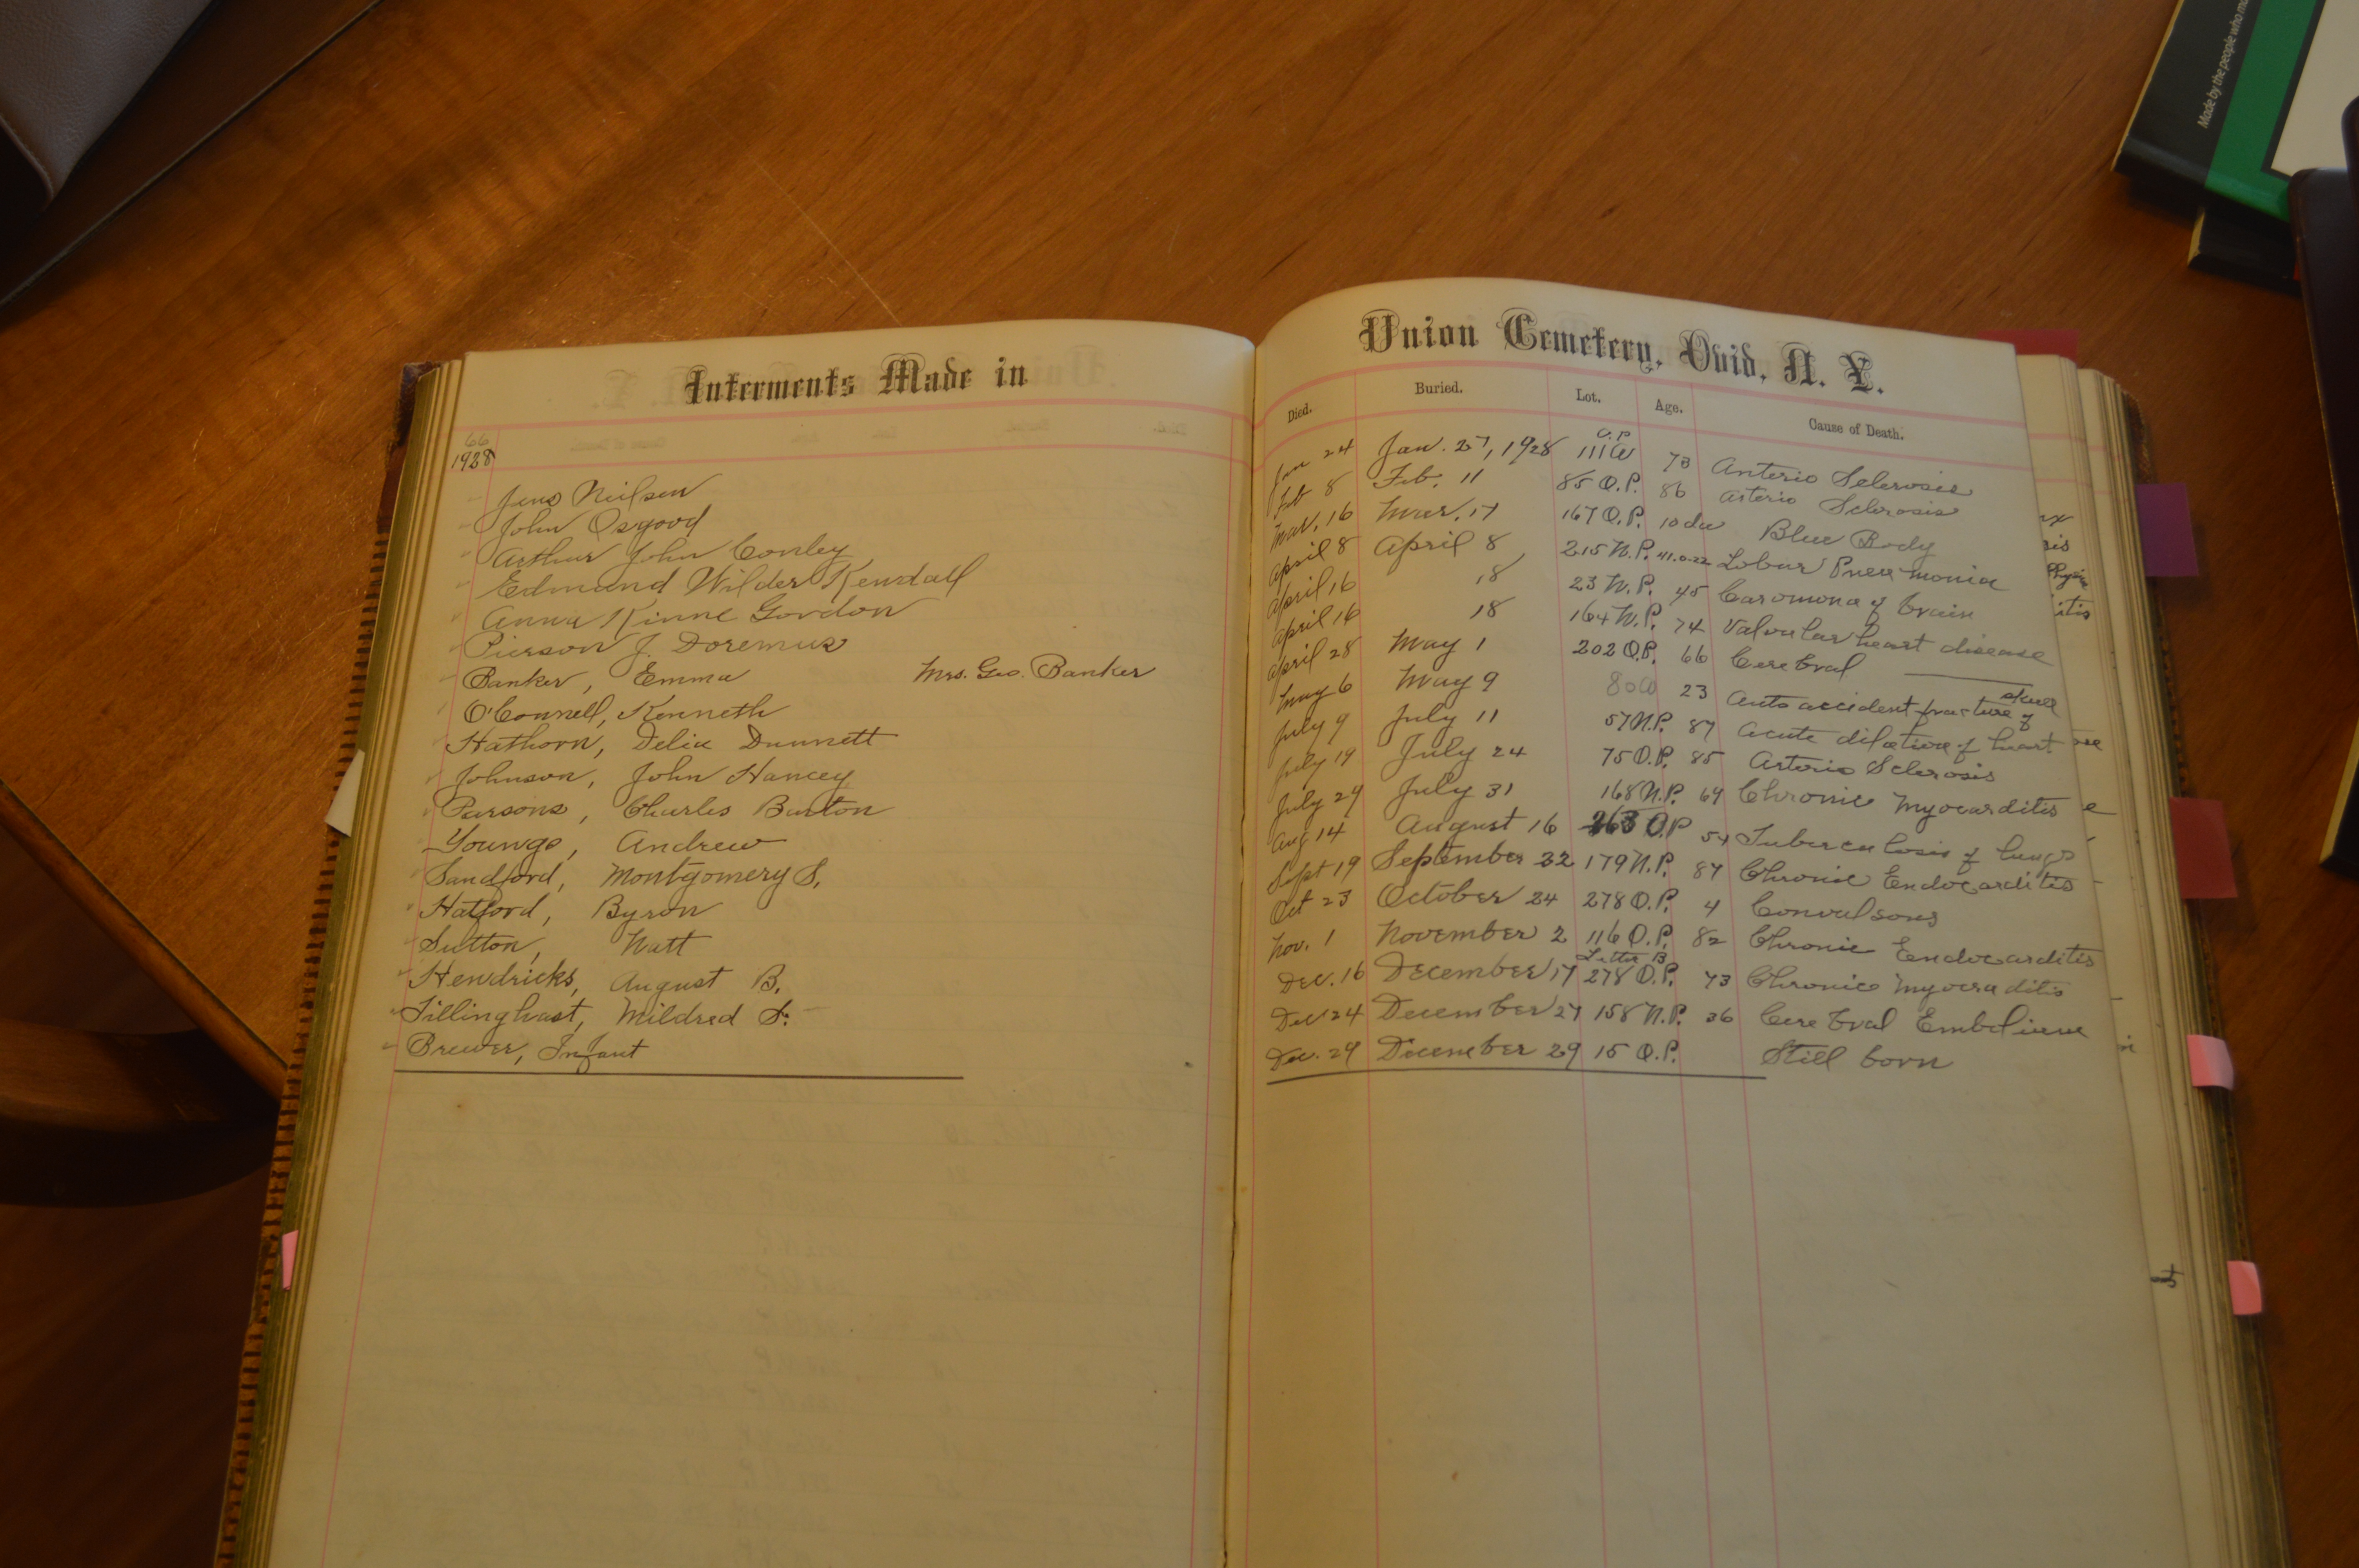 Made by the people who ma
Interments Made in
66
1928
Jens Neilsen
John Osgood
Arthur John Conley
Edmund Wilder Kendall
Anna Kinne Gordon
Pierson J. Doremus
Banker, Emma Mrs. Geo. Banker
O'Connell, Kenneth
Hathorn, Delia Dunnett
Johnson, John Hancey
Parsons, Charles Burton
Youngs, Andrew
Sandford, Montgomery S.
Hatford, Byron
Sutton, Natt
Hendricks, August B.
Tillinghast, Mildred S.
Brewer, Infant
Union Cemetery, Ovid, N. Y.
Died. Buried. Lot. Age. Cause of Death.
O.P.
Jan 24 Jan. 27, 1928 111 73 Anterio Sclerosis
Feb 8 Feb. 11 85 O.P. 86 Arterio Sclerosis
Mar. 16 Mar. 17 167 O.P. 10 da Blue Body
April 8 April 8 215 N.P. 41.0.22 Lobar Pneumonia
April 16 18 23 N.P. 45 Caromona of brain
April 16 18 164 N.P. 74 Valvular heart disease
April 28 May 1 202 O.P. 66 Cerebral
May 6 May 9 80 23 Auto accident fracture of skull
July 9 July 11 57 N.P. 87 Acute dilative of heart
July 19 July 24 75 O.P. 85 Arterio Sclerosis
July 29 July 31 168 N.P. 69 Chronic Myocarditis
Aug 14 August 16 263 O.P 54 Tuberculosis of lungs
Sept 19 September 22 179 N.P. 87 Chronic Endocarditis
Oct 23 October 24 278 O.P. 4 Convulsons
Nov. 1 November 2 116 O.P. 82 Chronic Endocarditis
Letter B
Dec. 16 December 17 278 O.P. 73 Chronic Myocraditis
Dec 24 December 27 158 N.P. 36 Cerebral Embolism
Dec. 29 December 29 15 O.P. Still born